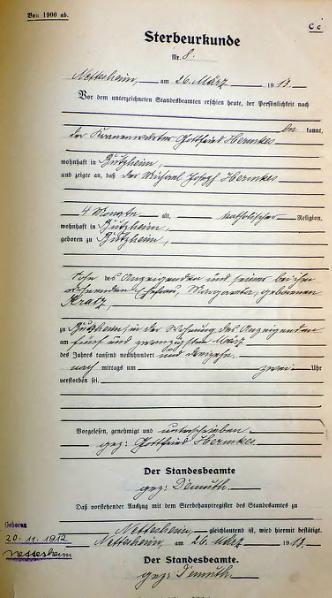 Von 1900 ab.
C c
Sterbeurkunde
Nr. 8.
Nettesheim, am 26. März 1913.
Vor dem unterzeichneten Standesbeamten erschien heute, der Persönlichkeit nach
be kannt,
der Gottfried Hermkes
wohnhaft in Butzheim,
und zeigte an, daß der Michael Joseph Hermkes
4 Monate alt, katholischer Religion,
wohnhaft in Butzheim,
geboren zu Butzheim,
Sohn des Anzeigenden und seiner bei ihm
wohnenden Ehefrau, Margareta geborenen
Kratz,
zu Butzheim, in der Wohnung des Anzeigenden
am fünf und zwanzigsten März
des Jahres tausend neunhundert und dreizehn
nach mittags um zwei Uhr
verstorben sei.
Vorgelesen, genehmigt und unterschrieben
gez: Gottfried Hermkes
Der Standesbeamte
gez: Demuth.
Daß vorstehender Auszug mit dem Sterbehauptregister des Standesamts zu
Nettesheim gleichlautend ist, wird hiermit bestätigt.
Geboren
20. 11. 1912
Nettesheim
Nettesheim, am 26. März 1913.
Der Standesbeamte.
gez: Demuth